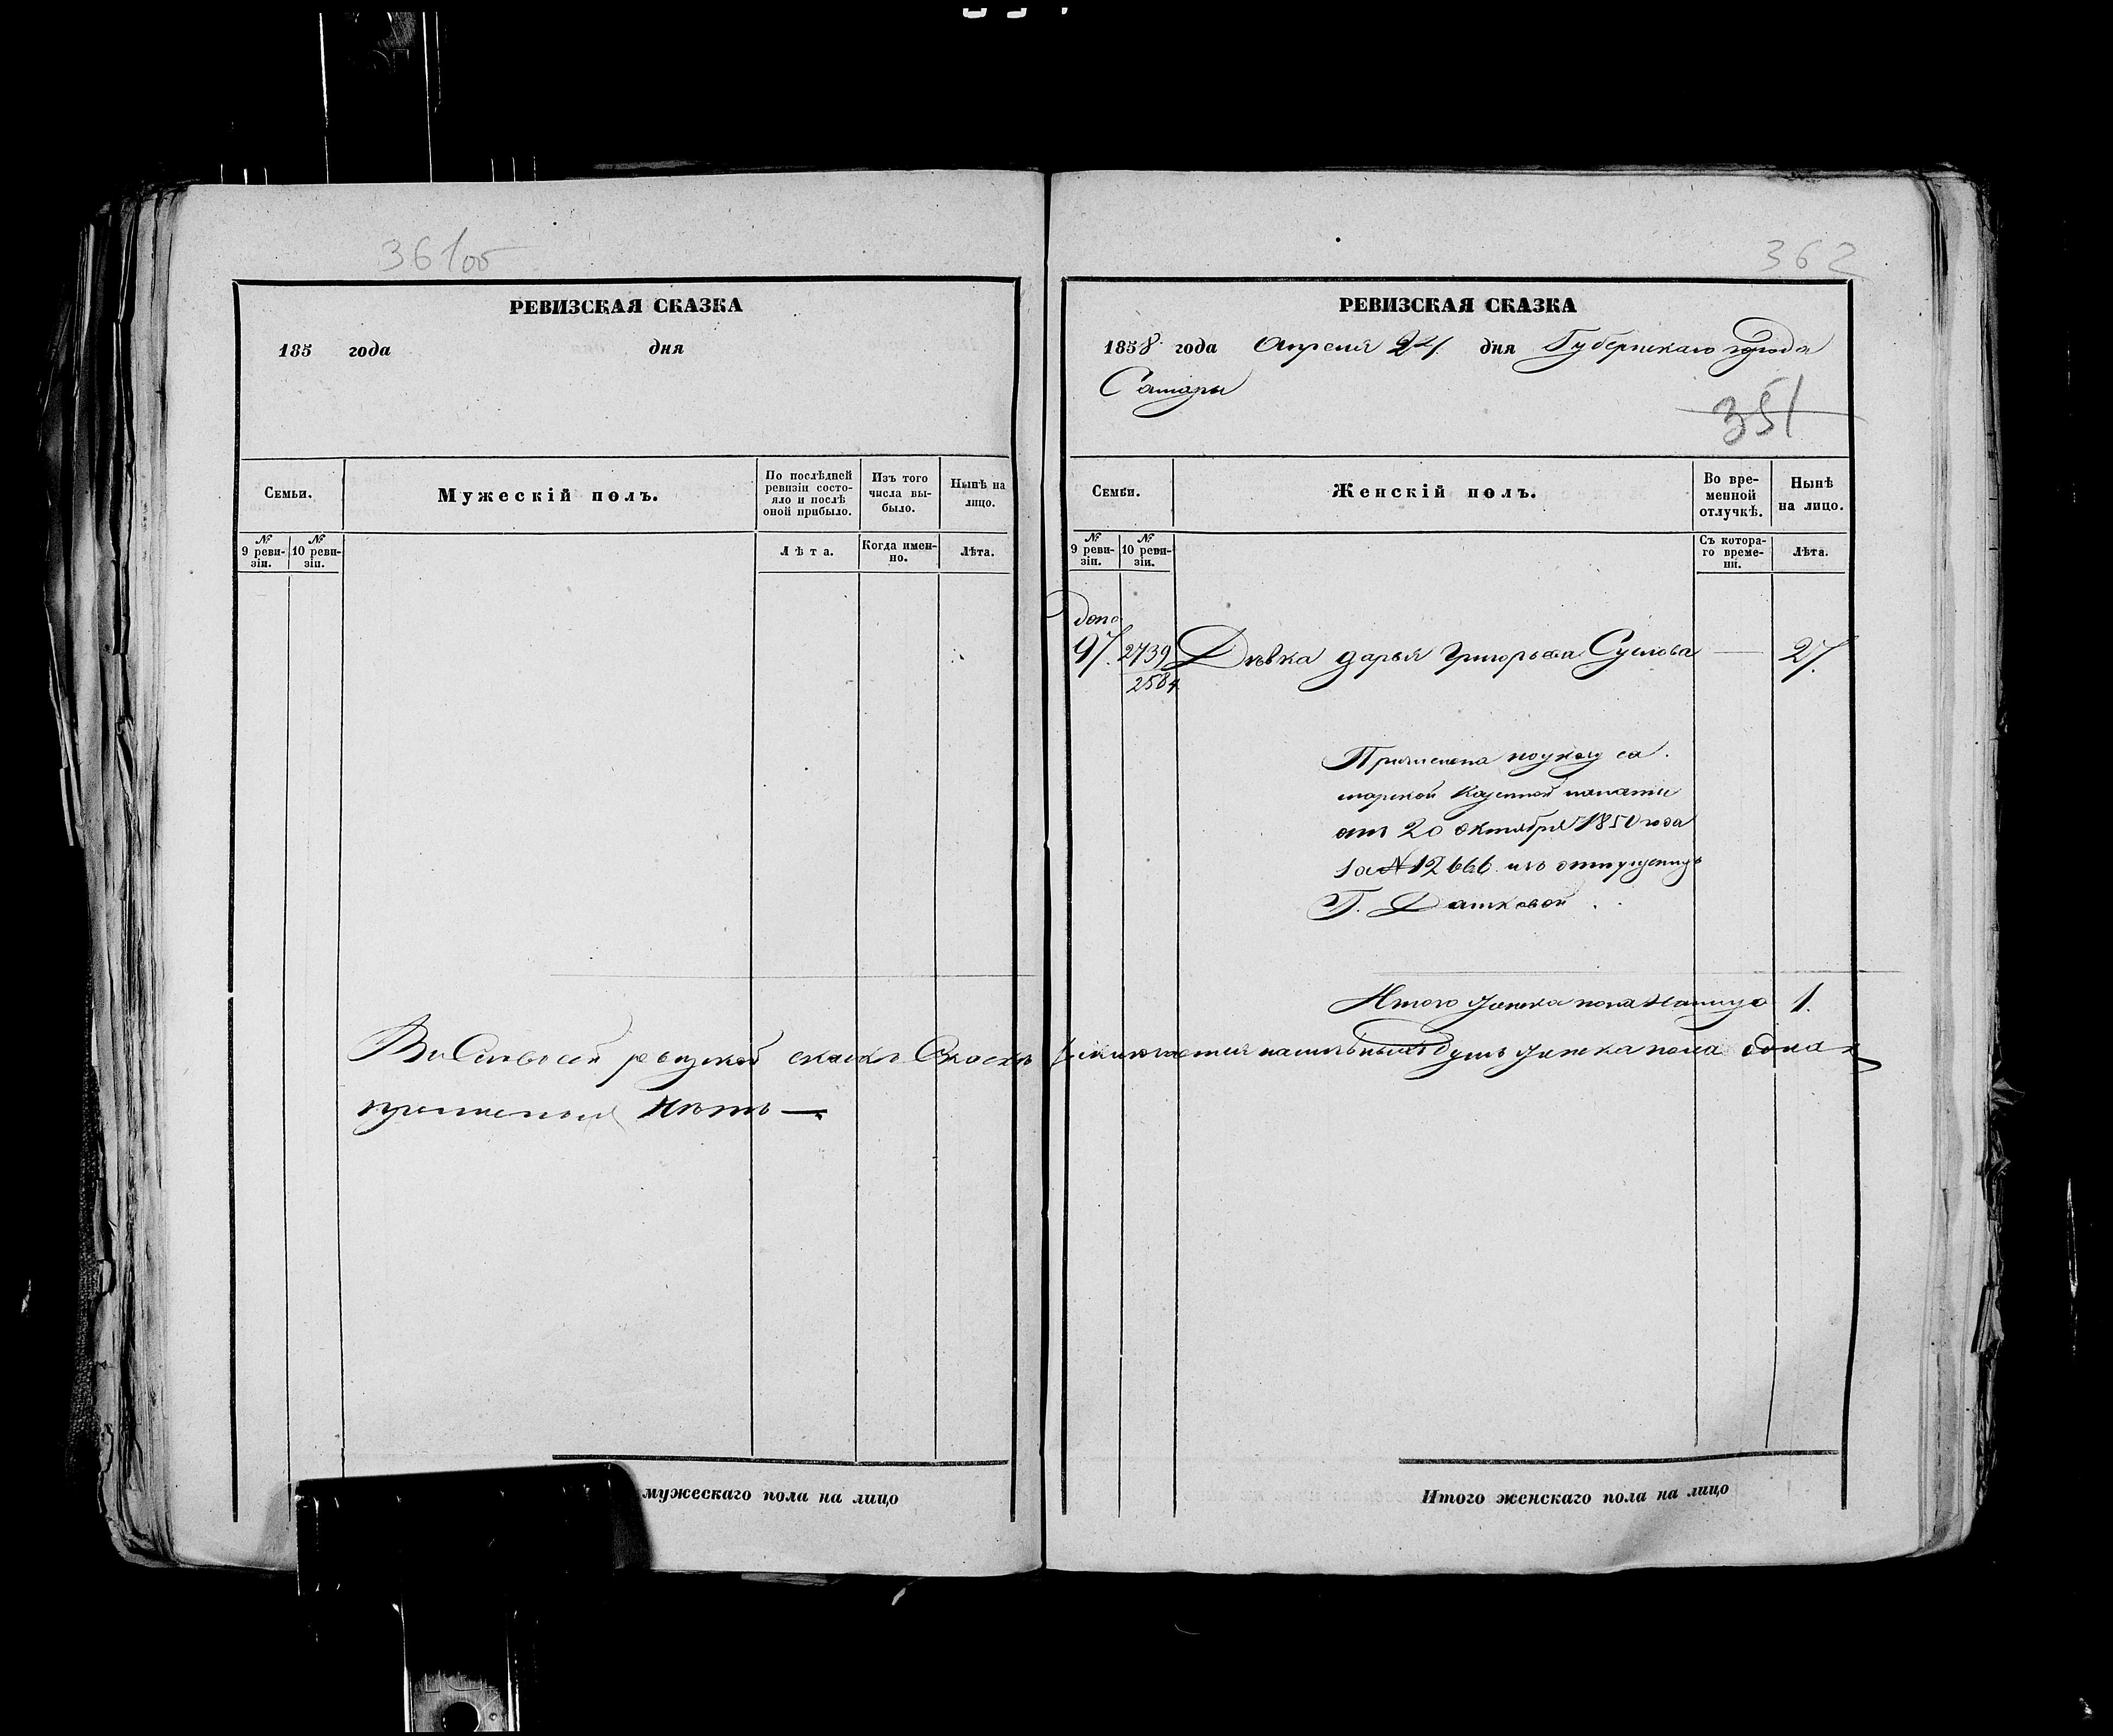 361об
РЕВИЗСКАЯ СКАЗКА
185 года дня
Семьи.
Мужескій полъ.
По послѣдней ревизіи состояло и послѣ оной прибыло.
Изъ того числа выбыло.
Нынѣ на лицо.
№ 9 ревизіи.
№ 10 ревизіи.
Лѣта.
Когда именно.
Лѣта.
мужескаго пола на лицо
362
РЕВИЗСКАЯ СКАЗКА
1858 года Апреля 24 дня Губернскаго города
Самары
351
Семьи.
Женскій полъ.
Во временной отлучкѣ.
Нынѣ на лицо.
№ 9 ревизіи.
№ 10 ревизіи.
Съ котораго времени.
Лѣта.
допо
97. 2739 Дѣвка дарья Григорьева Суслова — 27.
2584
Причислена по указу са
марской Казенной палаты
отъ 20 октября 1850 года
за № 12666 изъ отпущенныхъ
Г. Дашковой
Итого женска пола налицо 1.
ревизской сказкѣ душъ женска пола одна
нѣтъ —
Итого женскаго пола на лицо